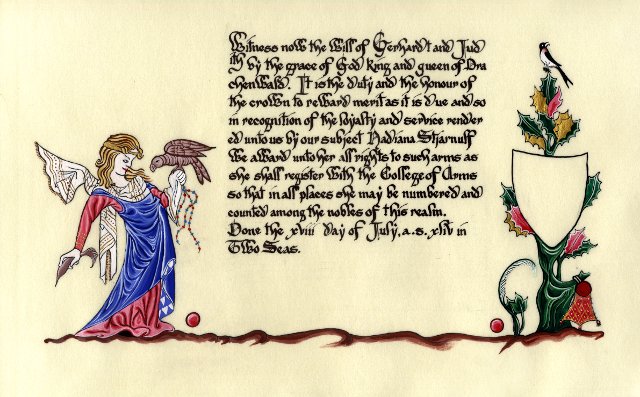 Witness now the will of Gerhardt and Jud
ith by the grace of God king and queen of Dra
chenwald. It is the duty and the honour of
the crown to reward merit as it is due and so
in recognition of the loyalty and service render
ed unto us by our subject Nadiana Stjarnulf
We award unto her all rights to such arms as
she shall register with the College of Arms
so that in all places she may be numbered and
counted among the nobles of this realm.
Done the xviii day of July, a.s. xliv in
Two Seas.